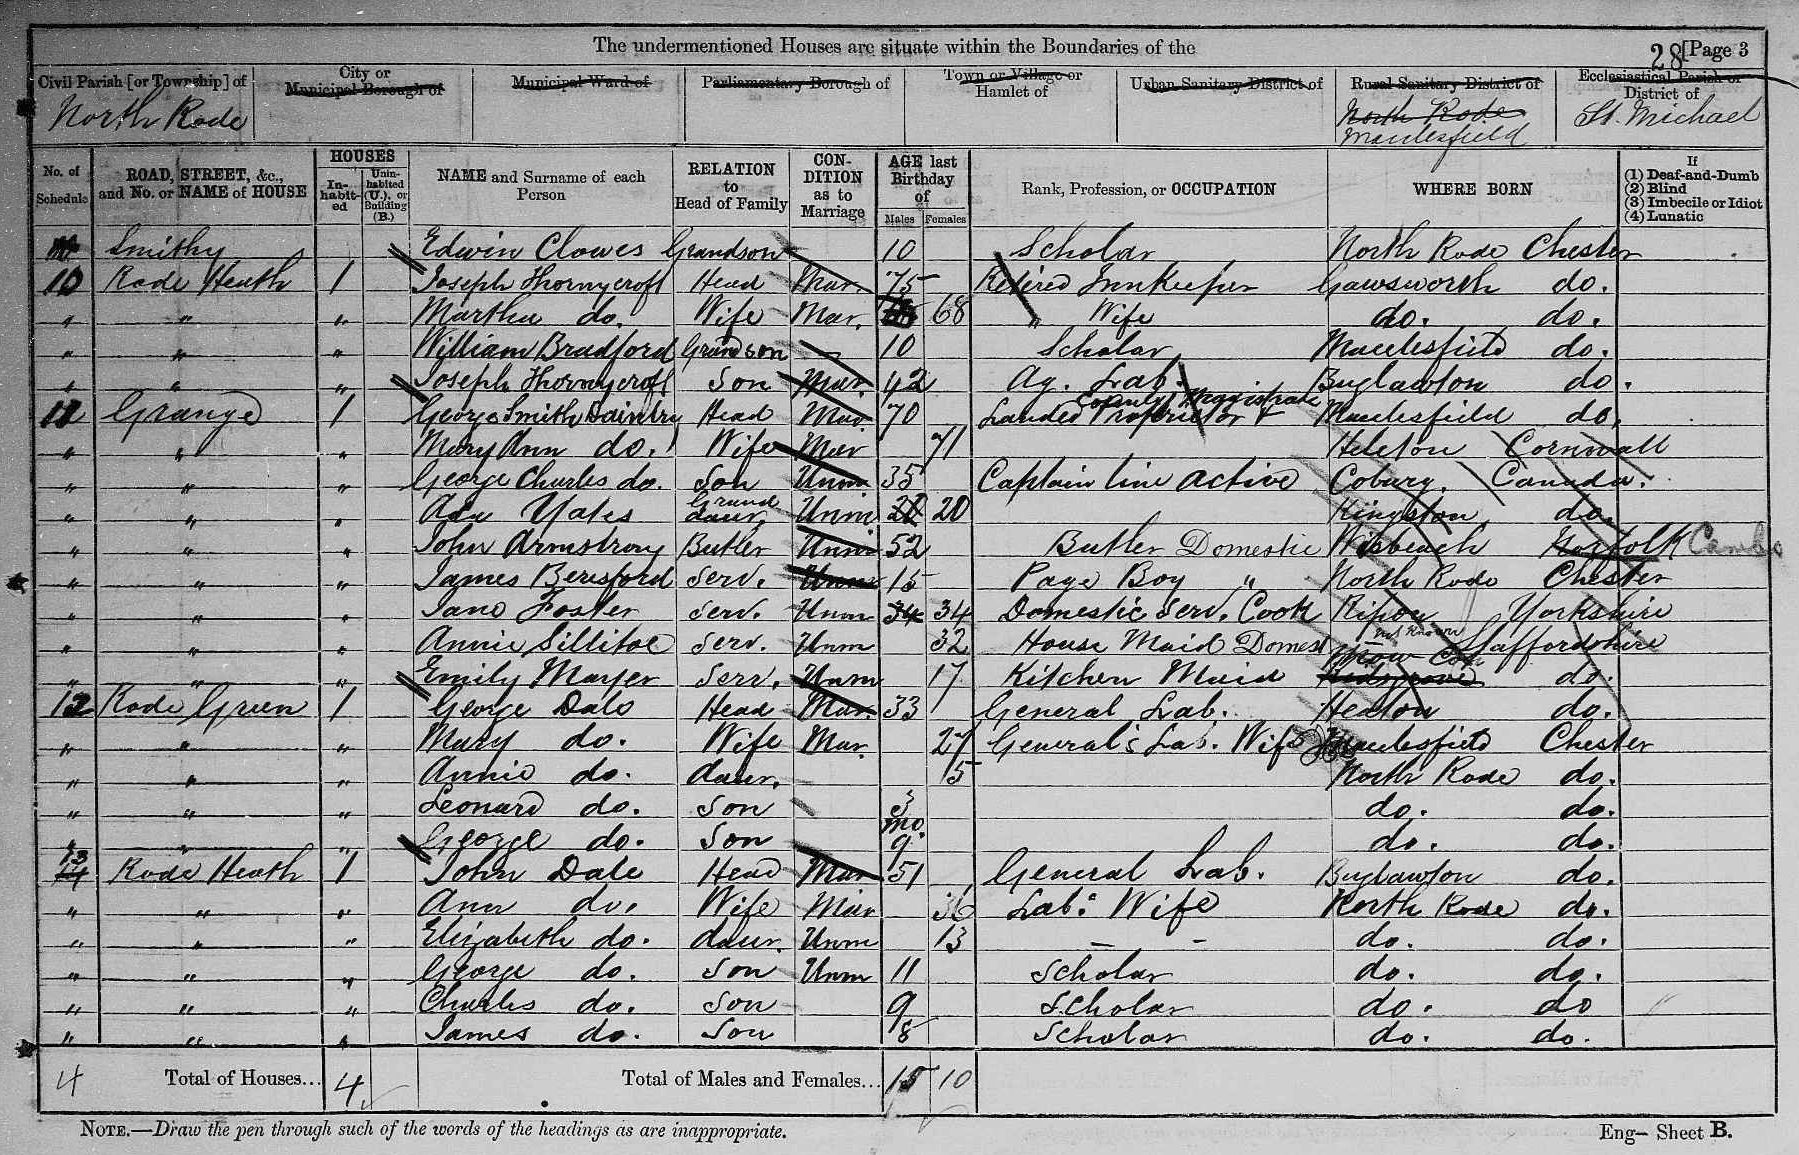 The undermentioned Houses are situate within the Boundaries of the
28 [Page 3
Civil Parish [or Township] of
North Rode
City or
Municipal Borough of
Municipal Ward of
Parliamentary Borough of
Town or Village or
Hamlet of
Urban Sanitary District of
Rural Sanitary District of
North Rode
Macclesfield
Ecclesiastical Parish or
District of
St. Michael
No. of Schedule
ROAD, STREET, &c., and No. or NAME of HOUSE
HOUSES
In-habit-ed
Unin-habited (U.), or Building (B.)
NAME and Surname of each Person
RELATION to Head of Family
CON-DITION as to Marriage
AGE last Birthday of
Males Females
Rank, Profession, or OCCUPATION
WHERE BORN
If
(1) Deaf-and-Dumb
(2) Blind
(3) Imbecile or Idiot
(4) Lunatic
Smithy Edwin Clowes Grandson 10 Scholar North Rode Chester
10 Rode Heath 1 Joseph Thornycroft Head Mar. 75 Retired Innkeeper Gawsworth do.
" " " Martha do. Wife Mar. 68 " Wife do. do.
" " " William Bradford Grandson 10 Scholar Macclesfield do.
" " " Joseph Thornycroft Son Mar. 42 Ag. Lab. Buglawton do.
11 Grange 1 George Smith Daintry Head Mar. 70 Landed Proprietor + County Magistrate Macclesfield do.
" " " Mary Ann do. Wife Mar 71 Helston Cornwall
" " " George Charles do. Son Unm 35 Captain Line Active Coburg. Canada.
" " " Ada Yates Grand daur. Unm 20 Kingston do.
" " " John Armstrong Butler Unm 52 Butler Domestic Wisbeach Norfolk Cambs
" " " James Beresford Serv. Unm 15 Page Boy " North Rode Chester
" " " Jane Foster Serv. Unm 34 34 Domestic Serv. Cook Ripon Yorkshire
" " " Annie Sillitoe Serv. Unm 32 House Maid Domes not known Staffordshire
" " " Emily Mayer Serv. Unm 17 Kitchen Maid Mow Cop Kidsgrove do.
12 Rode Green 1 George Dale Head Mar. 33 General Lab. Heaton do.
" " " Mary do. Wife Mar. 27 General's Lab. Wife Macclesfield Chester
" " " Annie do. daur. 5 North Rode do.
" " " Leonard do. Son 3 do. do.
" " " George do. Son mo. 9 do. do.
13 14 Rode Heath 1 John Dale Head Mar 51 General Lab. Buglawton do.
" " " Ann do. Wife Mar 36 Lab.s Wife North Rode do.
" " " Elizabeth do. daur. Unm 13 – – do. do.
" " " George do. Son Unm 11 Scholar do. do.
" " " Charles do. Son 9 Scholar do. do
" " " James do. Son 8 Scholar do. do.
4 Total of Houses... 4 Total of Males and Females... 15 10
NOTE.—Draw the pen through such of the words of the headings as are inappropriate.
Eng– Sheet B.